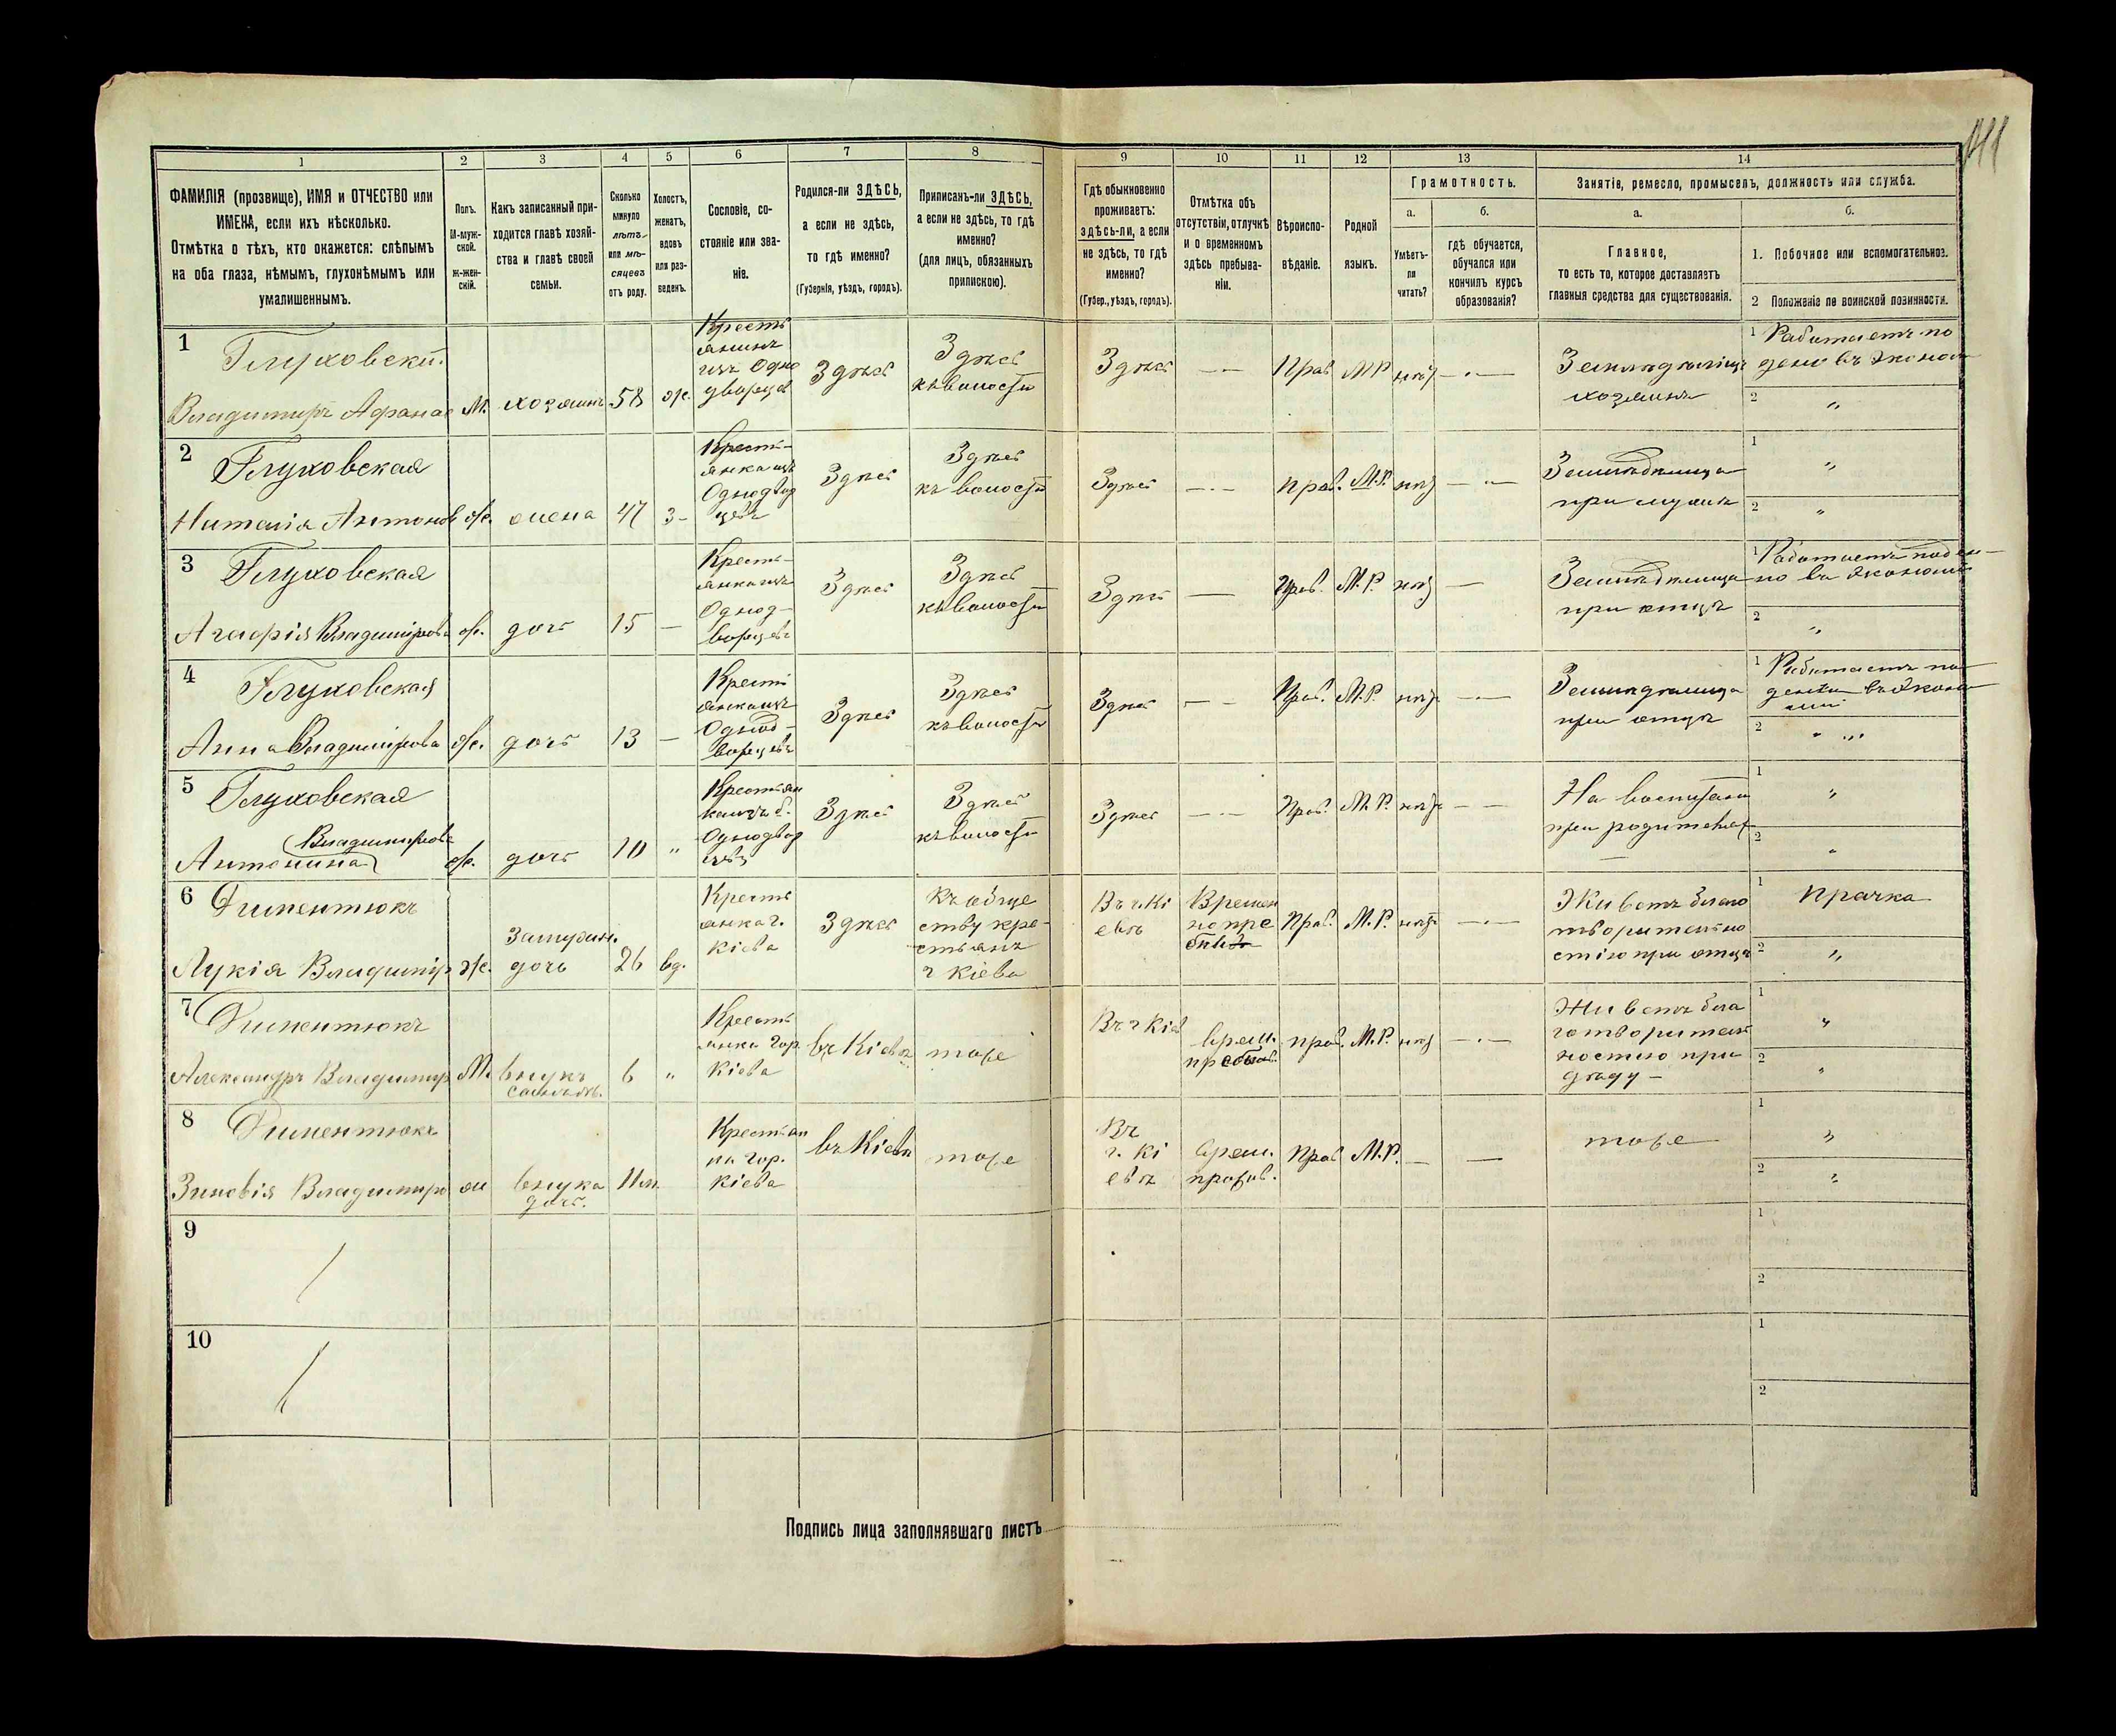 1 2 3 4 5 6 7 8 9 10 11 12 13 14
ФАМИЛІЯ (прозвище), ИМЯ и ОТЧЕСТВО или
ИМЕНА, если ихъ нѣсколько.
Отмѣтка о тѣхъ, кто окажется: слѣпымъ
на оба глаза, нѣмымъ, глухонѣмымъ или
умалишеннымъ.
Полъ.
М-муж-
ской.
Ж-жен-
скій.
Какъ записанный при-
ходится главѣ хозяй-
ства и главѣ своей
семьи.
Сколько
минуло
лѣтъ
или мѣ-
сяцевъ
отъ роду.
Холостъ,
женатъ,
вдовъ
или раз-
веденъ.
Сословіе, со-
стояніе или зва-
ніе.
Родился-ли ЗДѢСЬ,
а если не здѣсь,
то гдѣ именно?
(Губернія, уѣздъ, городъ).
Приписанъ-ли ЗДѢСЬ,
а если не здѣсь, то гдѣ
именно?
(для лицъ, обязанныхъ
припискою).
Гдѣ обыкновенно
проживаетъ:
здѣсь-ли, а если
не здѣсь, то гдѣ
именно?
(Губер., уѣздъ, городъ).
Отмѣтка объ
отсутствіи, отлучкѣ
и о временномъ
здѣсь пребыва-
ніи.
Вѣроиспо-
вѣданіе.
Родной
языкъ.
Грамотность.
а.
Умѣетъ-
ли
читать?
б.
гдѣ обучается,
обучался или
кончилъ курсъ
образованія?
Занятіе, ремесло, промыселъ, должность или служба.
а.
Главное,
то есть то, которое доставляетъ
главныя средства для существованія.
б.
1. Побочное или вспомогательное.
2 Положеніе по воинской повинности.
1
Глуховскій.
Владимиръ Афанас
М.
хозяинъ
58
ж.
Кресть
янинъ
изъ Одно
дворцев
Здѣсь
Здѣсь
къ волости
Здѣсь
Прав
М.Р.
нѣтъ
Земледѣлецъ
хозяинъ
1 Работаетъ по
денно въ эконом
2 "
2
Глуховская
Наталія Антонов
ж.
жена
47
з-
Кресть-
янка изъ
Однодвор
цевъ
Здѣсь
Здѣсь
къ волости
Здѣсь
прав.
М.Р.
нѣтъ
Земледѣлица
при мужѣ
1 "
2 "
3
Глуховская
Агафія Владимірова
ж.
дочь
15
—
Кресть-
янка изъ
Однод-
ворцевъ
Здѣсь
Здѣсь
къ волости
Здѣсь
—
Прав.
М.Р.
нѣтъ
—
Земледѣлица
при отцѣ
1 Работаетъ поден-
но въ экономіи
2 "
4
Глуховская
Анна Владимірова
ж.
дочь
13
—
Кресть
янка изъ
Однод-
ворцевъ
Здѣсь
Здѣсь
къ волости
Здѣсь
Прав.
М.Р.
нѣтъ
Земледѣлица
при отцѣ
1 Работаетъ по
денно въ эконо
міи
2 "
5
Глуховская
Владимірова
Антонина
ж.
дочь
10
"
Крестьян
Однодвор
цевъ
Здѣсь
Здѣсь
къ волости
Здѣсь
Прав.
М.Р.
нѣтъ
На воспитаніи
при родителях
1 "
2 "
6
Лукія Владимір
ж.
Замужн.
дочь
26
вд.
Кресть
янка г.
Кіева
Здѣсь
Къ обще
ству кре-
стьянъ
г Кіева
Въ г. Кі
евѣ
Времен
но пре
Прав.
М.Р.
нѣтъ
Живетъ благо
творительно
стію при отцѣ
1 Прачка
2 "
7
Александръ Владимир
М.
внукъ
6
"
Кресть
янка гор
Кіева
въ Кіевѣ
тоже
Въ г Кіев
врем.
пребыв.
прав.
М.Р.
нѣтъ
Живетъ бла
готворител
ностію при
дѣду —
1 "
2 "
8
Зиновія Владимиро
внука
дочь.
11 м.
Крестьян
ка гор.
Кіева
въ Кіевѣ
тоже
Въ
г. Кі
евѣ
врем.
Прав
М.Р.
—
—
тоже
1 "
2 "
9
1
2
10
1
2
Подпись лица заполнявшаго листъ